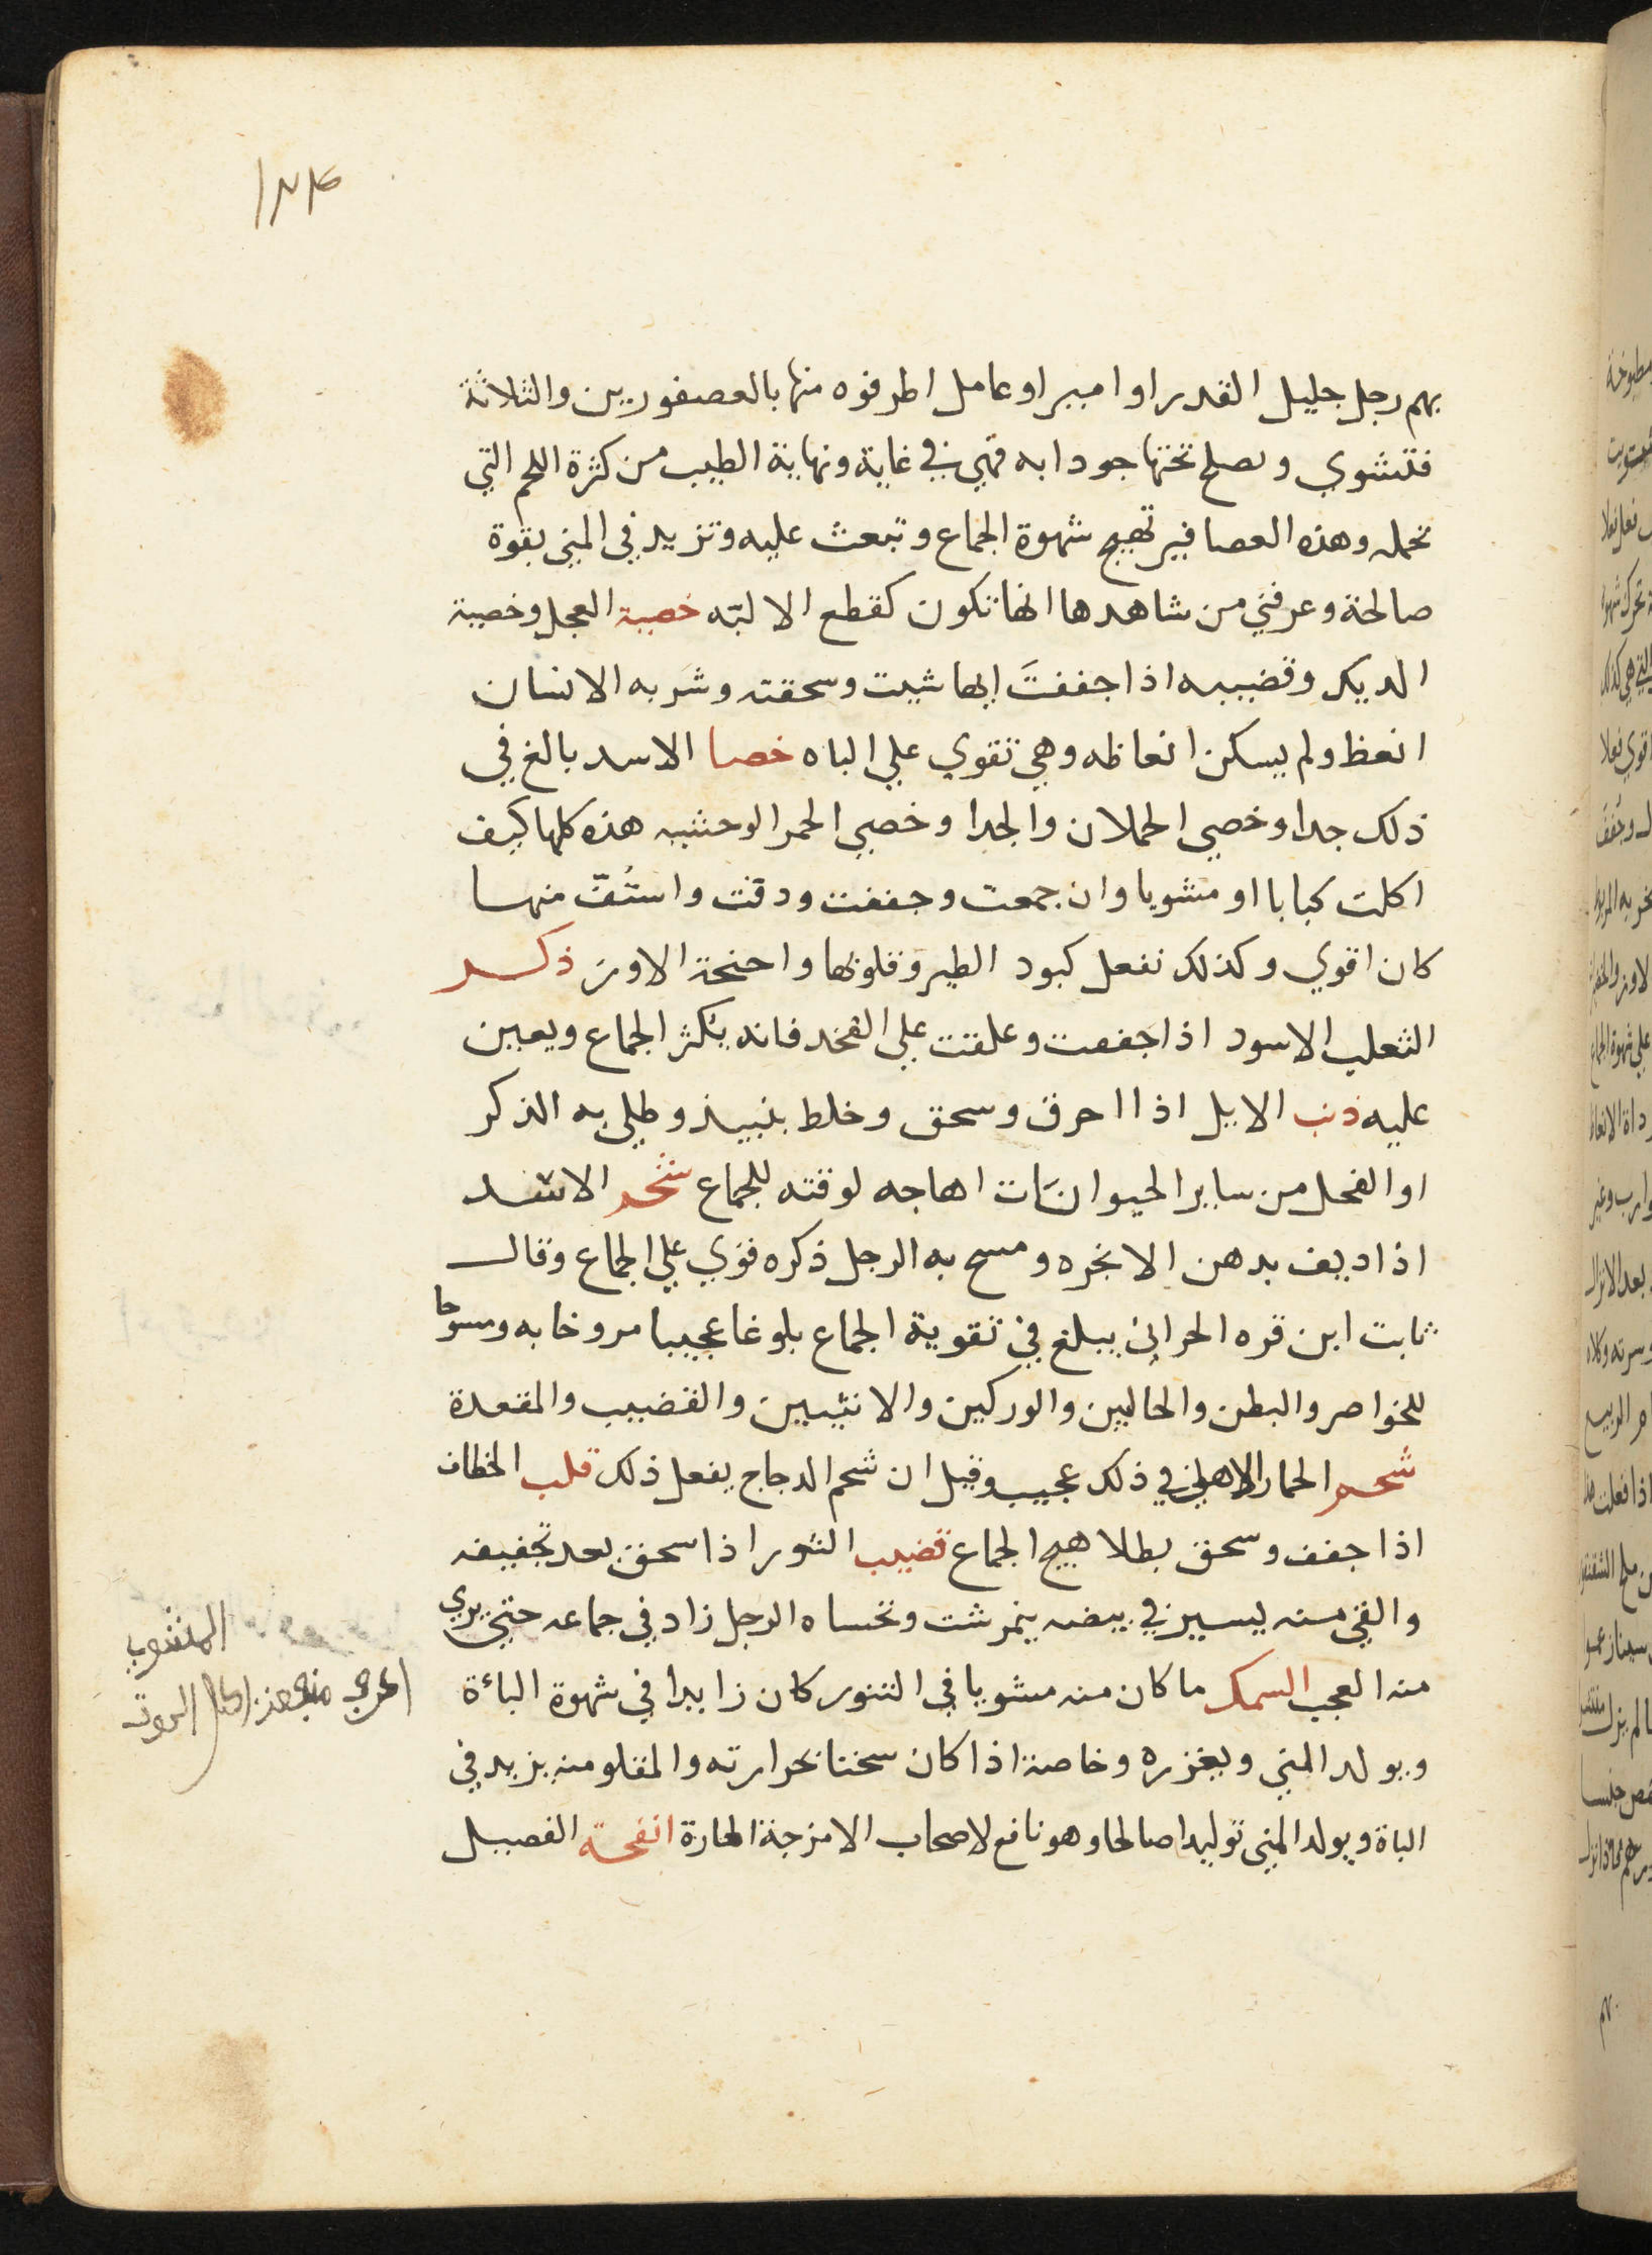 بهم رجل جليل القدر او امير او عامل اطرفوه منها بالعصفورين والثلاثة
فتشوي وتصلح تحتها جودابه فهي في غاية ونهاية الطيب من كثرة اللحم التي
تحمله وهذه العصافير تهيج شهوة الجماع وتبعث عليه وتزيد في المني بقوة
صالحة وعرفني من شاهدها انها تكون كقطع الالبّه خصية العجل وخصية
الديك وقضيبه اذا جففتَ ايها شيت وسحقته وشربه الانسان
انعظ ولم يسكن انعاظه وهي تقوي علي الباه خصا الاسد بالغ في
ذلك جدا وخصي الحملان والجدا وخصي الحمر الوحشيه هذه كلها كيف
اكلت كبابا او مشويا وان جمعت وجففت ودقت واستُفّ منها
كان اقوي وكذلك تفعل كبود الطير وقلوبها واجنحة الاوز ذكر
الثعلب الاسود اذا جففت وعلقت علي الفخد فانه يكثر الجماع ويعين
عليه ذنب الايل اذا احرق وسحق وخلط بنبيذ وطلي به الذكر
او الفحل من ساير الحيوانَات اهاجه لوقته للجماع شحم الاسد
اذا ديف بدهن الانجره ومسح به الرجل ذكره قوي علي الجماع وقال
ثابت ابن قره الحراني يبلغ في تقوية الجماع بلوغا عجيبا مروخا به ومسوحا
للخواصر والبطن والحالبين والوركين والانثيين والقضيب والمقعدة
شحم الحمار الاهلي في ذلك عجيب وقيل ان شحم الدجاج يفعل ذلك قلب الخطاف
اذا جفف وسحق بطلا هيج الجماع قضيب الثور اذا سحق بعد تجفيفه
والقي منه يسير في بيضه ينمرشت وتحساه الرجل زاد في جماعه حتي يري
منه العجب السمك ما كان منه مشويا في التنور كان زايدا في شهوة الباءة
ويولد المني ويغزره وخاصة اذا كان سخنا بحرارته والمقلو منه يزيد في
الباة ويولد المني توليدا صالحا وهو نافع لاصحاب الامزجة الحارة انفحة الفصيل